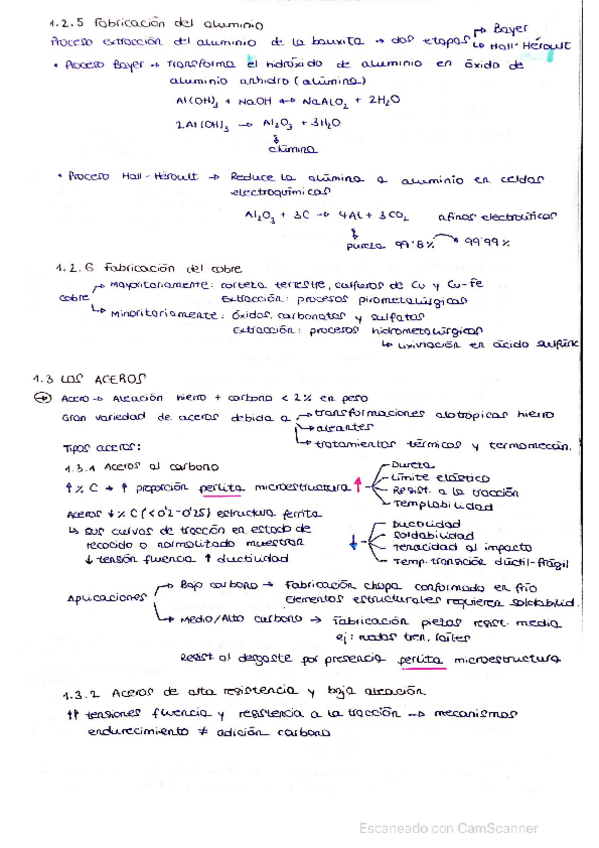 1.2.5 Fabricación del aluminio
Proceso extracción del aluminio de la bauxita → dos etapas → Bayer
↳ Hall-Héroult
• Proceso Bayer → transforma el hidróxido de aluminio en óxido de
aluminio anhidro (alúmina)
Al(OH)₃ + NaOH ↔ NaAlO₂ + 2H₂O
2Al(OH)₃ → Al₂O₃ + 3H₂O
alúmina
• Proceso Hall-Héroult → Reduce la alúmina a aluminio en celdas
electroquímicas
Al₂O₃ + 3C → 4Al + 3CO₂ afinos electrolíticos
pureza 99'8% → 99'99%
1.2.6 Fabricación del cobre
cobre → Mayoritariamente: corteza terrestre, sulfuros de Cu y Cu-Fe
Extracción: procesos pirometalúrgicos
↳ Minoritariamente: óxidos, carbonatos y sulfatos
Extracción: procesos hidrometalúrgicos
↳ lixiviación en ácido sulfúric
1.3 LOS ACEROS
→ Acero → Aleación hierro + carbono < 2% en peso
Gran variedad de aceros debida a → transformaciones alotrópicas hierro
→ aleantes
→ tratamientos térmicos y termomecán.
Tipos aceros:
1.3.1 Aceros al carbono
↑ % C → ↑ proporción perlita microestructura ↑ Dureza
Límite elástico
Resist. a la tracción
Templabilidad
Aceros ↓ % C (<0'2-0'25) estructura ferrita
↳ sus curvas de tracción en estado de
recocido o normalizado muestran
↓ tensión fluencia ↑ ductilidad
↓ Ductilidad
Soldabilidad
Tenacidad al impacto
Temp. transición dúctil-frágil
Aplicaciones → Bajo carbono → Fabricación chapa conformado en frío
Elementos estructurales requieren soldabilid.
↳ Medio/Alto carbono → Fabricación piezas resist. media
ej: ruedas tren, raíles
Resist al desgaste por presencia perlita microestructura
1.3.2 Aceros de alta resistencia y baja aleación
↑↑ tensiones fluencia y resistencia a la tracción → mecanismos
endurecimiento ≠ adición carbono
Escaneado con CamScanner